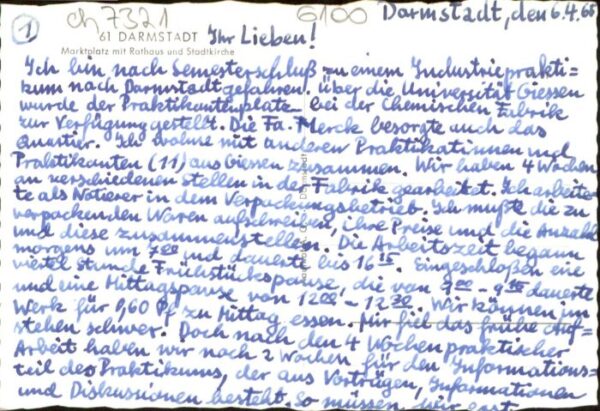 1
ch 7321
6100
Darmstadt, den 6.4.66
61 DARMSTADT
Ihr Lieben!
Marktplatz mit Rathaus und Stadtkirche
Ich bin nach Semesterschluß zu einem Industrieprakti=
kum nach Darmstadt gefahren. Über die Universität Giessen
wurde der Praktikantenplatz bei der Chemischen Fabrik
zur Verfügung gestellt. Die Fa. Merck besorgte auch das
Quartier. Ich wohne mit anderen Praktikantinnen und
Praktikanten (11) aus Giessen zusammen. Wir haben 4 Wochen
an verschiedenen Stellen in der Fabrik gearbeitet. Ich arbeite
te als Notierer in dem Verpackungsbetrieb. Ich mußte die zu
verpackenden Waren aufschreiben, ihre Preise und die Anzahl
und diese zusammenstellen. Die Arbeitszeit begann
morgens um 7 00 und dauerte bis 16 15. Eingeschloßen eine
viertel Stunde Frühstückspause, die von 9 00 - 9 15 dauerte
und eine Mittagspause von 12 00 - 12 30. Wir können im
Werk für 0,60 Pf zu Mittag essen. Mir fiel das frühe Auf=
stehen schwer! Doch nach den 4 Wochen praktischer
Arbeit haben wir noch 2 Wochen für den Informations=
teil des Praktikums, der aus Vorträgen, Informationen
und Diskussionen besteht. So müssen wir erst